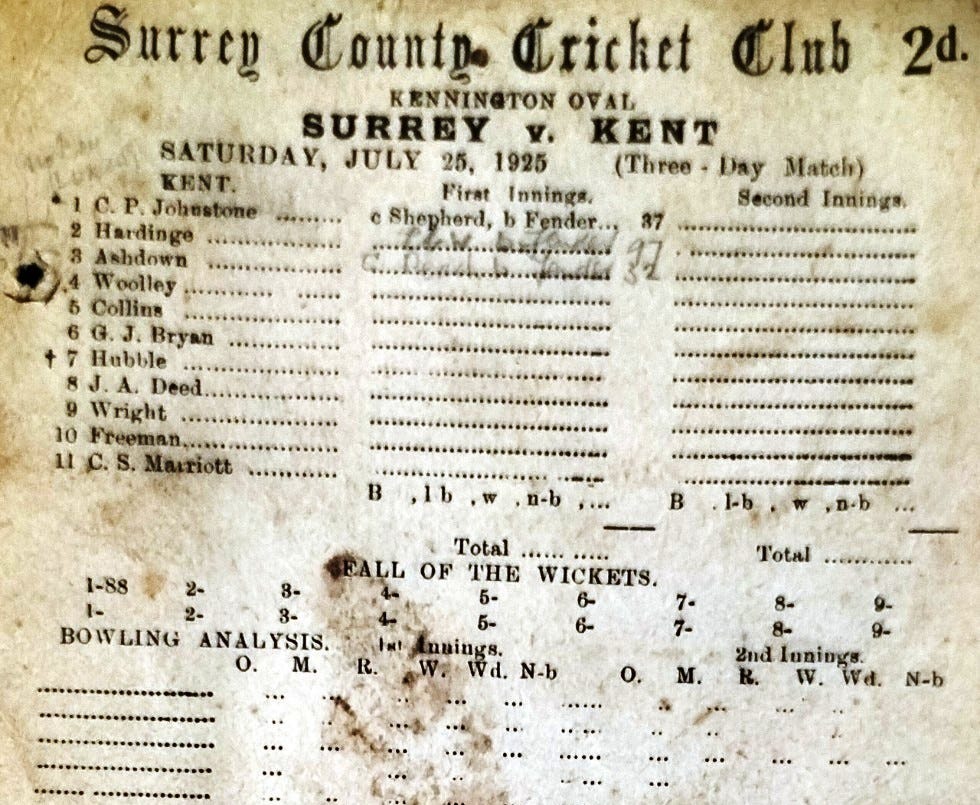 Surrey County Cricket Club 2d.
KENNINGTON OVAL
SURREY v. KENT
SATURDAY, JULY 25, 1925 (Three - Day Match)
KENT. First Innings. Second Innings.
* 1 C. P. Johnstone ......... c Shepherd, b Fender... 37
2 Hardinge 97
3 Ashdown c b Fender 37
4 Woolley
5 Collins
6 G. J. Bryan
† 7 Hubble
8 J. A. Deed
9 Wright
10 Freeman
11 C. S. Marriott
B , l b , w , n-b ,... B . l-b , w , n-b ...
Total ...... ..... Total ............
FALL OF THE WICKETS.
1-88 2- 3- 4- 5- 6- 7- 8- 9-
1- 2- 3- 4- 5- 6- 7- 8- 9-
BOWLING ANALYSIS. 1st Innings. 2nd Innings.
O. M. R. W. Wd. N-b O. M. R. W. Wd. N-b